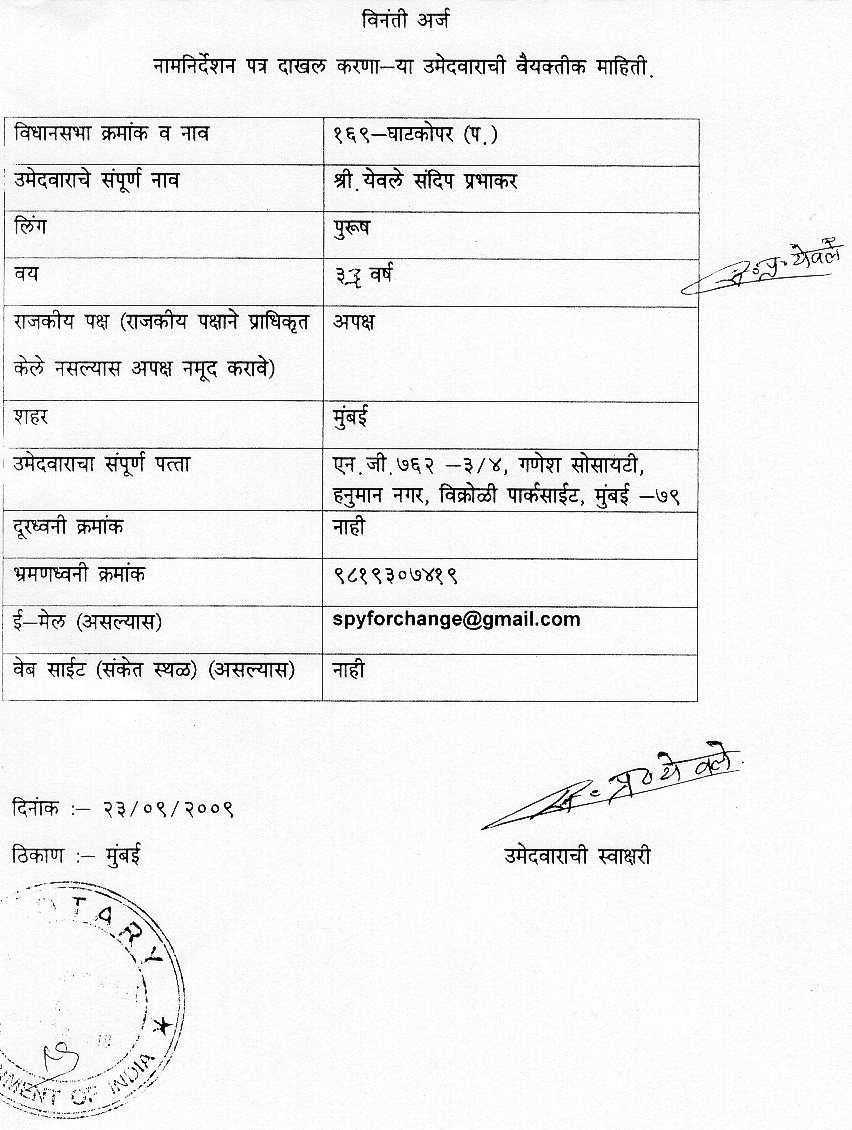 विनंती अर्ज
नामनिर्देशन पत्र दाखल करणा–या उमेदवाराची वैयक्तीक माहिती.
विधानसभा क्रमांक व नाव १६९–घाटकोपर (प.)
उमेदवाराचे संपूर्ण नाव श्री.येवले संदिप प्रभाकर
लिंग पुरूष
वय वर्ष
राजकीय पक्ष (राजकीय पक्षाने प्राधिकृत अपक्ष
केले नसल्यास अपक्ष नमूद करावे)
शहर मुंबई
उमेदवाराचा संपूर्ण पत्ता एन.जी.७६२ –३/४, गणेश सोसायटी,
हनुमान नगर, विक्रोळी पार्कसाईट, मुंबई –७९
दूरध्वनी क्रमांक नाही
भ्रमणध्वनी क्रमांक ९८१९३०७४१९
ई–मेल (असल्यास) spyforchange@gmail.com
वेब साईट (संकेत स्थळ) (असल्यास) नाही
स.प्र.येवले
स.प्र.येवले.
दिनांक :– २३/०९/२००९
ठिकाण :– मुंबई
उमेदवाराची स्वाक्षरी
OTARY
NMENT OF INDIA